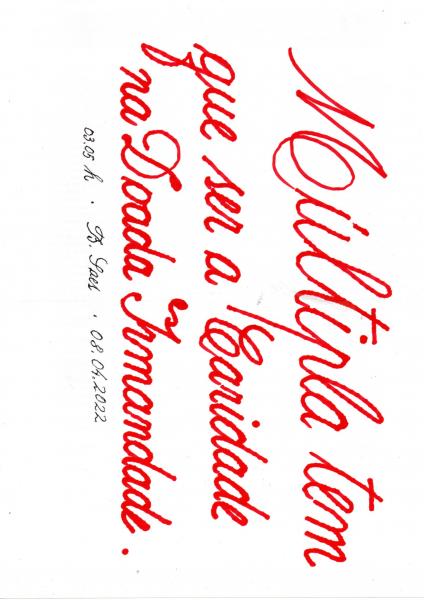 Múltipla tem
que ser a Caridade
na Doada Irmandade.
03.05 h . B. Saes . 08.04.2022